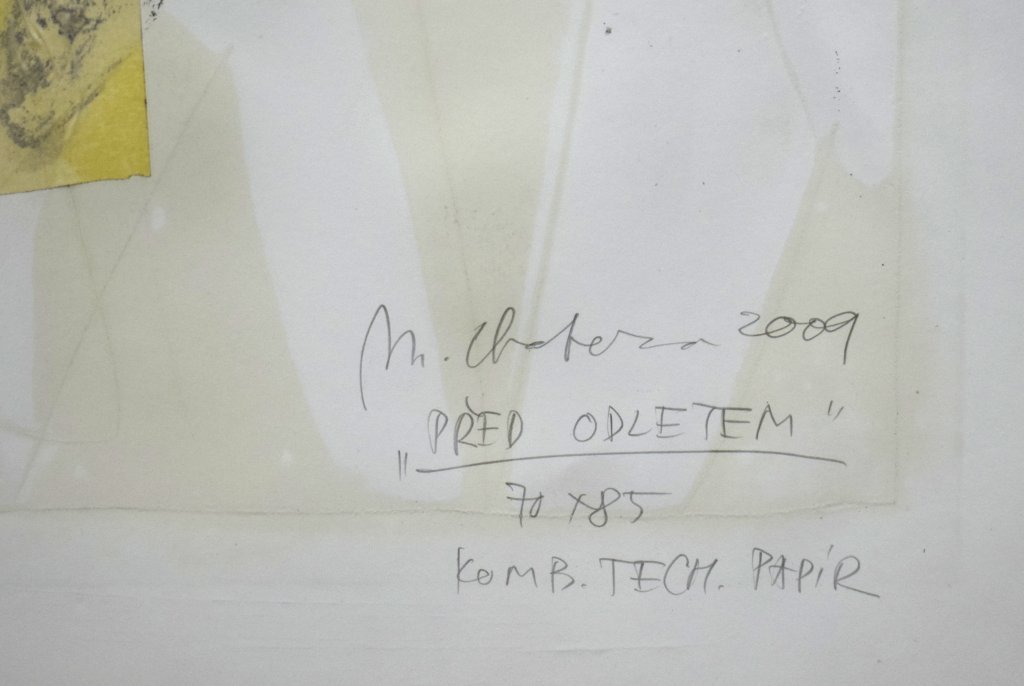 M. Chatrna 2009
„PŘED ODLETEM"
70 x 85
KOMB. TECH. PAPÍR